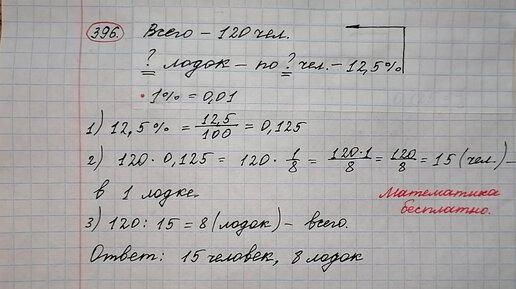 396. Всего – 120 чел.
? лодок – по ? чел. – 12,5%
• 1% = 0,01
1) 12,5% = 12,5/100 = 0,125
2) 120 · 0,125 = 120 · 1/8 = 120·1/8 = 120/8 = 15 (чел.) –
в 1 лодке.
Математика
бесплатно.
3) 120 : 15 = 8 (лодок) – всего.
Ответ: 15 человек, 8 лодок